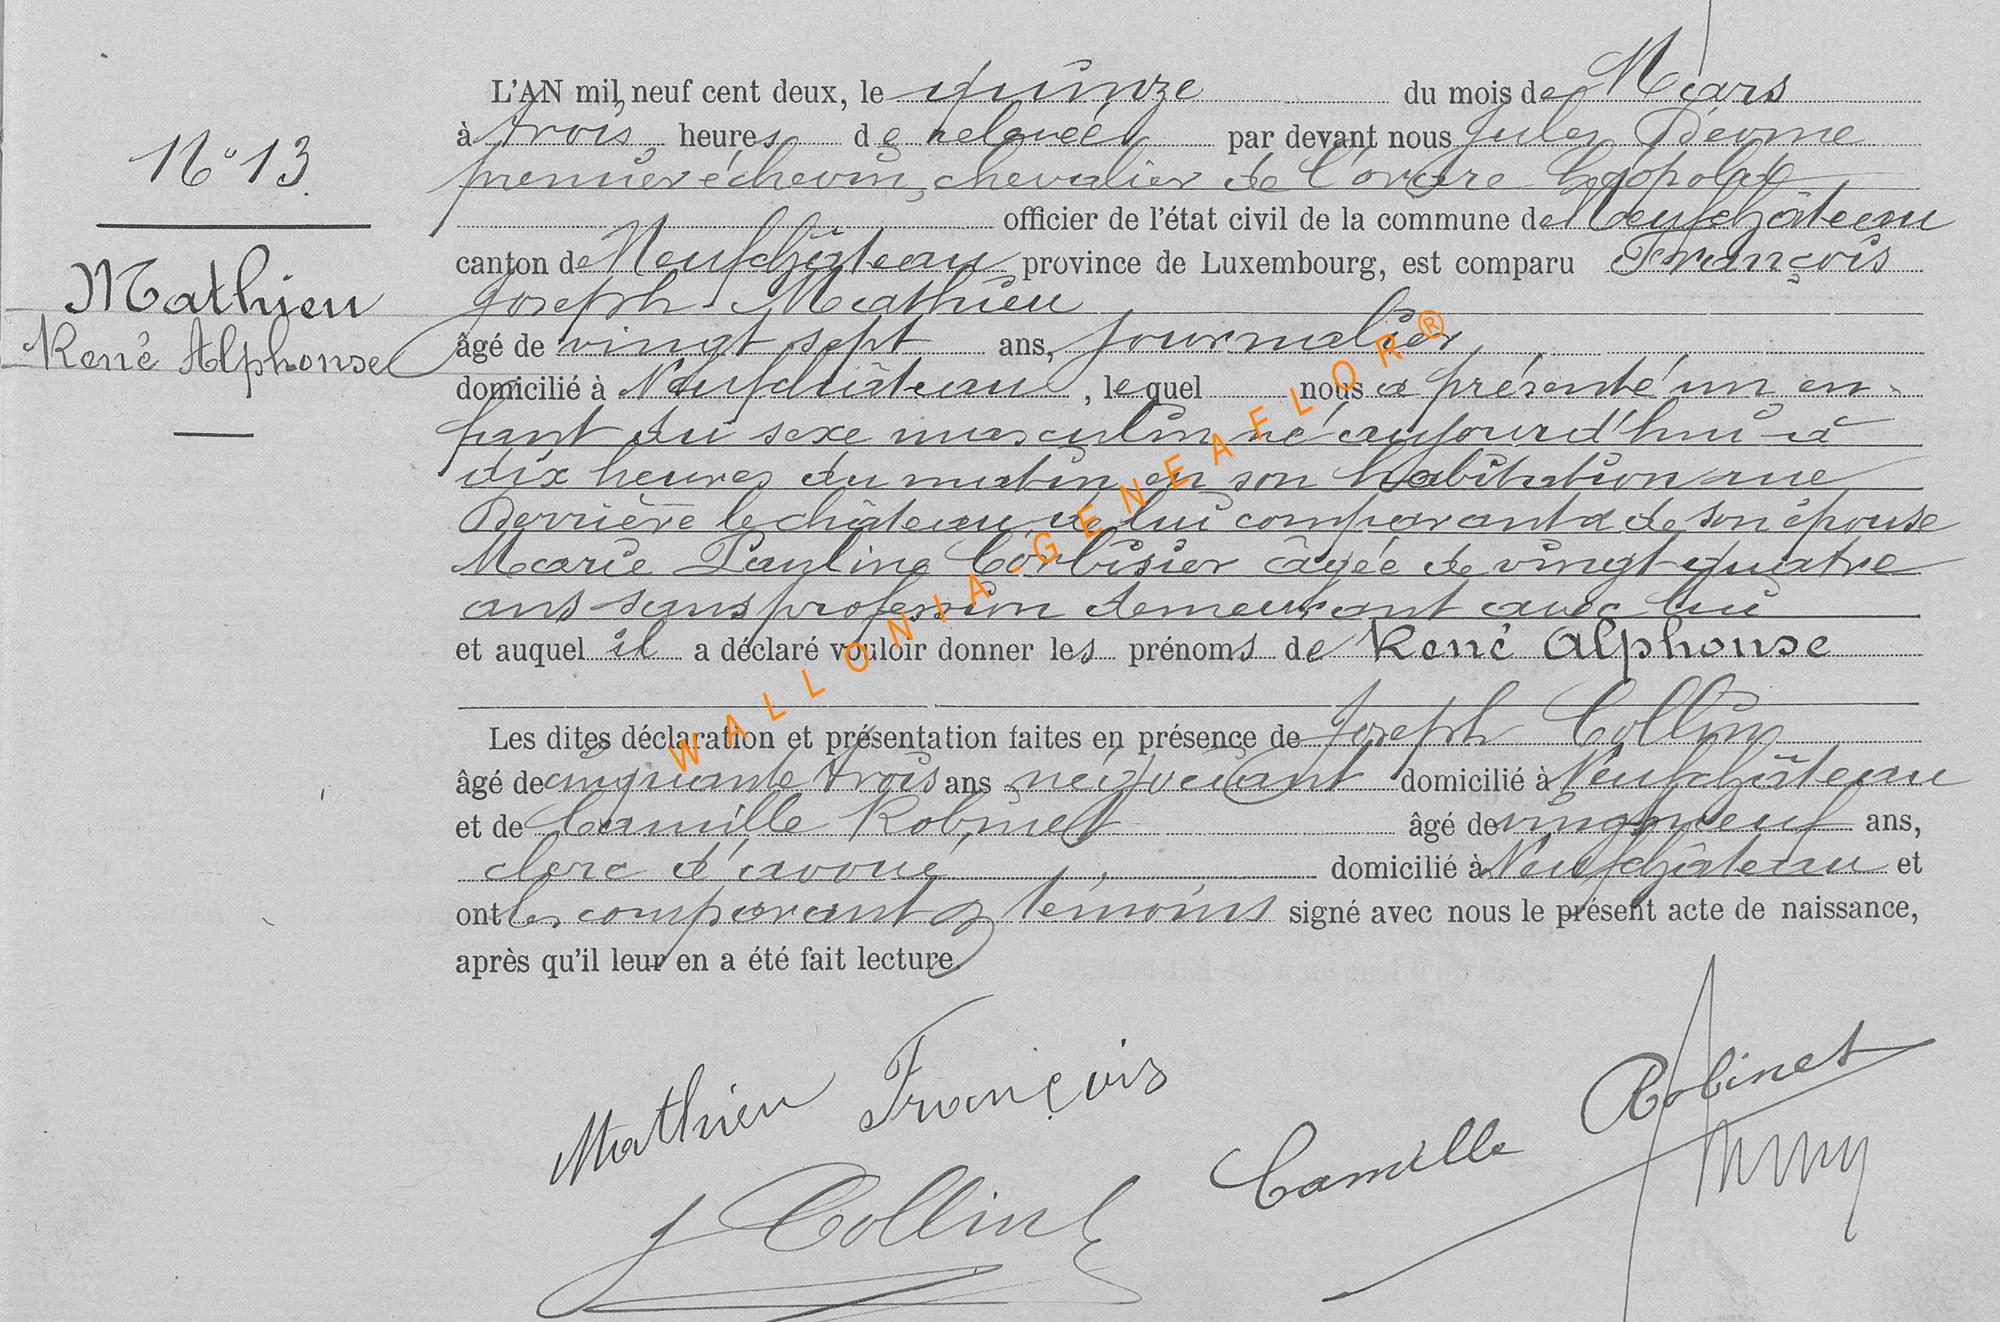 N° 13
Mathieu
René Alphonse
L'AN mil neuf cent deux, le quinze du mois de Mars
à trois heures de relevée par devant nous Jules
premier échevin, chevalier de l'ordre Léopold
officier de l'état civil de la commune de Neufchâteau
canton de Neufchâteau province de Luxembourg, est comparu François
Joseph Mathieu
âgé de vingt sept ans, journalier
domicilié à Neufchâteau, lequel nous a présenté un en-
fant du sexe masculin né aujourd'hui à
dix heures du matin en son habitation rue
Derrière le château de lui comparant & de son épouse
Marie Pauline Corbisier âgée de vingt quatre
ans sans profession demeurant avec lui
et auquel il a déclaré vouloir donner les prénoms de René Alphonse
Les dites déclaration et présentation faites en présence de Joseph Collin
âgé de cinquante trois ans négociant domicilié à Neufchâteau
et de Camille Robinet âgé de vingt neuf ans,
clerc d'avoué domicilié à Neufchâteau et
ont les comparant & témoins signé avec nous le présent acte de naissance,
après qu'il leur en a été fait lecture.
Mathieu François
J Collin
Camille Robinet
WALLONIA-GENEAFLOR®